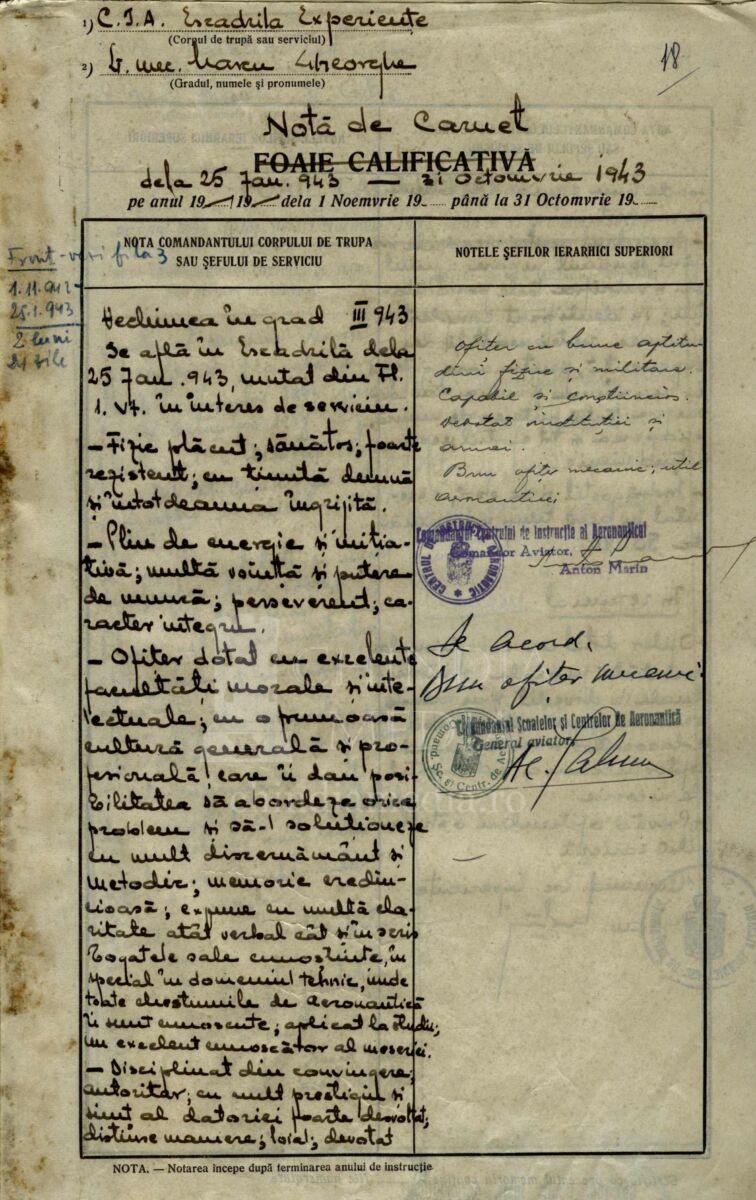 1) C.I.A. Escadrila Experiențe
(Corpul de trupă sau serviciul)
18
2) Lt. mec. Marcu Gheorghe
(Gradul, numele și pronumele)
Notă de Carnet
FOAIE CALIFICATIVĂ
dela 25 Jan. 943 — 31 Octomvrie 1943
pe anul 19 19 dela 1 Noemvrie 19 până la 31 Octomvrie 19
NOTA COMANDANTULUI CORPULUI DE TRUPA
SAU ȘEFULUI DE SERVICIU
NOTELE ȘEFILOR IERARHICI SUPERIORI
Front - vezi fila 3
1.11.942-
25.1.943
2 luni
24 zile
Vechimea în grad III 943
Se află în Escadrilă dela
25 Jan. 943, mutat din Fl.
1. Vt. în interes de serviciu.
— Fizic plăcut; sănătos; foarte
rezistent; cu ținută demnă
și întotdeauna îngrijită.
— Plin de energie și iniția-
tivă; multă voință și putere
de muncă; perseverent; ca-
racter integru.
— Ofițer dotat cu excelente
facultăți morale și inte-
lectuale; cu o frumoasă
cultură generală și pro-
fesională care îi dau posi-
bilitatea să abordeze orice
problem și să-l soluționeze
cu mult discernământ și
metodic; memorie credin-
cioasă; expune cu multă cla-
ritate atât verbal cât și în scris
bogatele sale cunoștințe, în
special în domeniul tehnic, unde
toate chestiunile de aeronautică
îi sunt cunoscute; aplicat la studiu;
un excelent cunoscător al meseriei.
— Disciplinat din convingere;
autoritar; cu mult prestigiu și
simț al datoriei foarte desvoltat;
distinse maniere; loial; devotat
Ofițer cu bune aptitu-
dini fizice și militare.
Capabil și conștiincios.
Devotat instituției și
armei.
Bun ofițer mecanic; util
aeronauticei
Comandantul Centrului de Instrucție al Aeronauticei
Comandor Aviator,
Anton Marin
De acord.
Bun ofițer mecanic.
Comandantul Școalelor și Centrelor de Aeronautică
General aviator
NOTA. — Notarea incepe după terminarea anului de instrucție